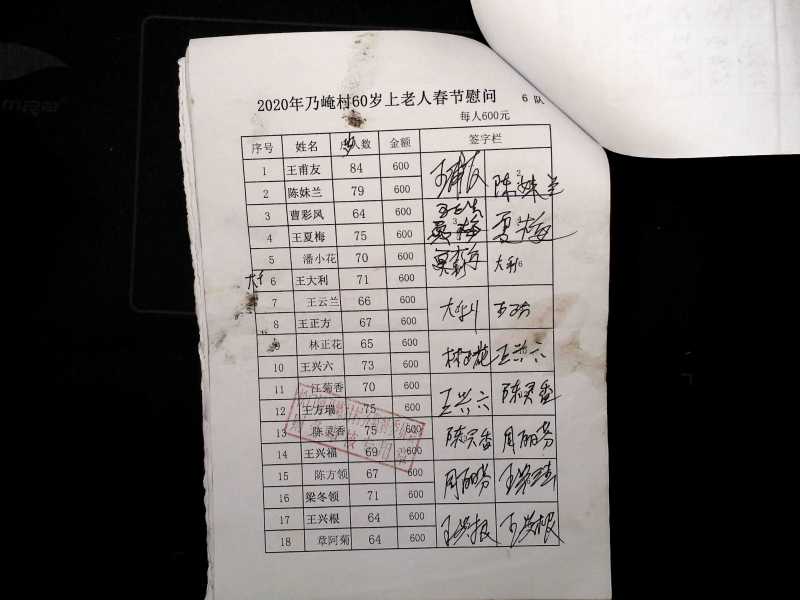 2020年乃崦村60岁上老人春节慰问 6 队
每人600元
序号 姓名 岁 人数 金额 签字栏
1 王甫友 84 600 王甫友
2 陈妹兰 79 600 2 陈妹兰
3 曹彩凤 64 600
4 王夏梅 75 600 3 4 夏梅
5 潘小花 70 600
大利 6 王大利 71 600 大利 6
7 王云兰 66 600
8 王正方 67 600 大利
9 林正花 65 600
10 王兴六 73 600 林正花 王兴六
11 汪菊香 70 600
12 王方瑞 75 600 王兴六 陈灵香
13 陈灵香 75 600
14 王兴福 69 600 陈灵香 周丽芬
15 陈方领 67 600
16 梁冬领 71 600 周丽芬
17 王兴根 64 600
18 章阿菊 64 600 王兴根 王兴根